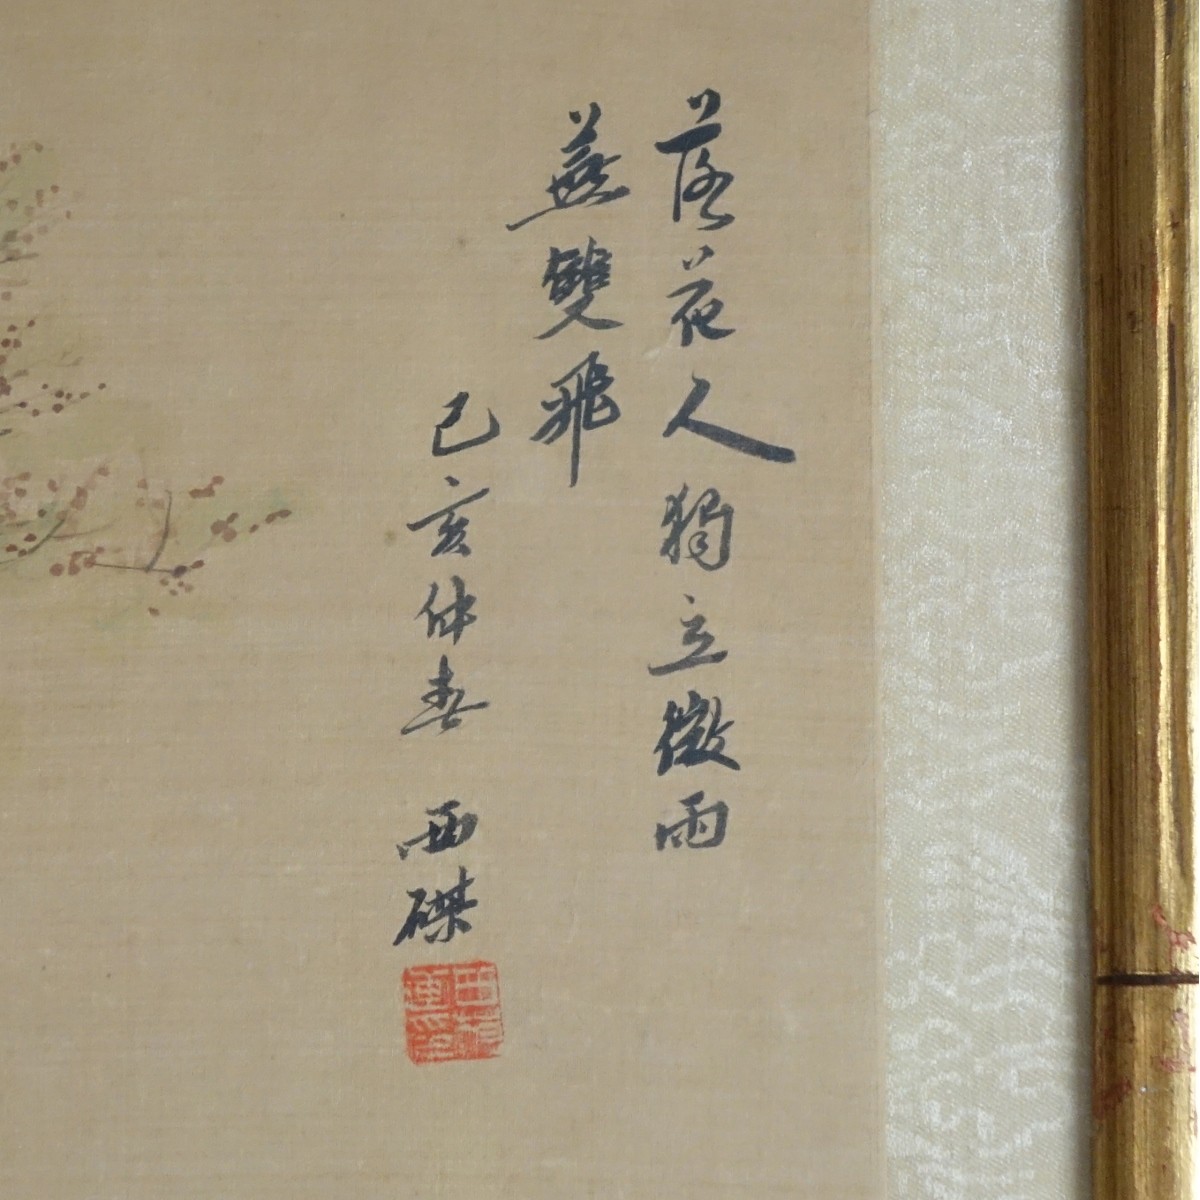 落花人獨立微雨
燕雙飛
己亥仲春 西磔